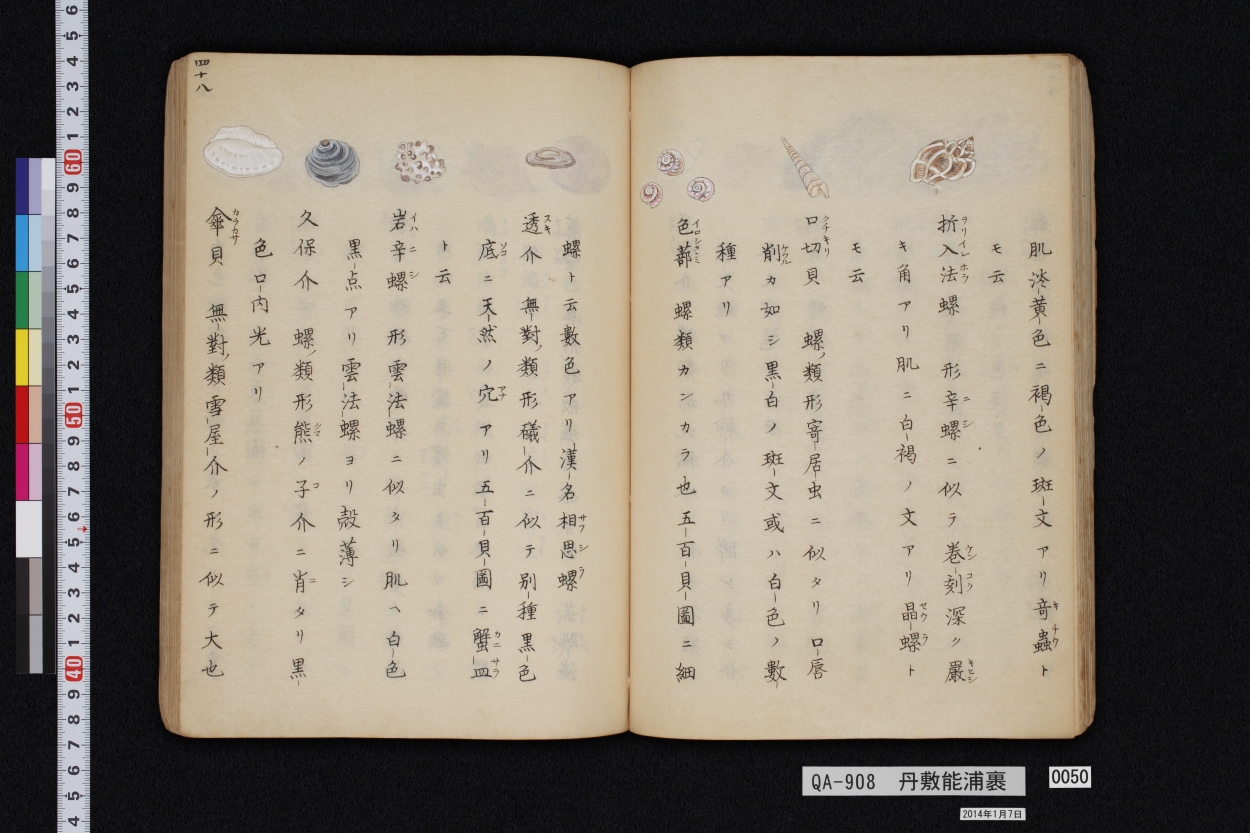 肌淡黄色ニ褐色ノ斑文アリ竒蟲ト
モ云
折入法螺　形辛螺ニ似テ巻刻深ク嚴
キ角アリ肌ニ白褐ノ文アリ晶螺ト
モ云
口切貝　螺ノ類形寄居虫ニ似タリ口唇
削カ如シ黒白ノ斑文或ハ白色ノ數
種アリ
色蔀　螺類カンカラ也五百貝圖ニ細
螺ト云數色アリ漢名相思螺
透介　無對ノ類形礒介ニ似テ别種黒色
底ニ天然ノ穴アリ五百貝圖ニ蟹皿
ト云
岩辛螺　形雲法螺ニ似タリ肌ヘ白色
黒点アリ雲法螺ヨリ殻薄シ
久保介　螺ノ類形熊ノ子介ニ肖タリ黒
色口内光アリ
傘貝　無對ノ類雪屋介ノ形ニ似テ大也
四十八
QA-908 丹敷能浦裹
0050
2014年1月7日